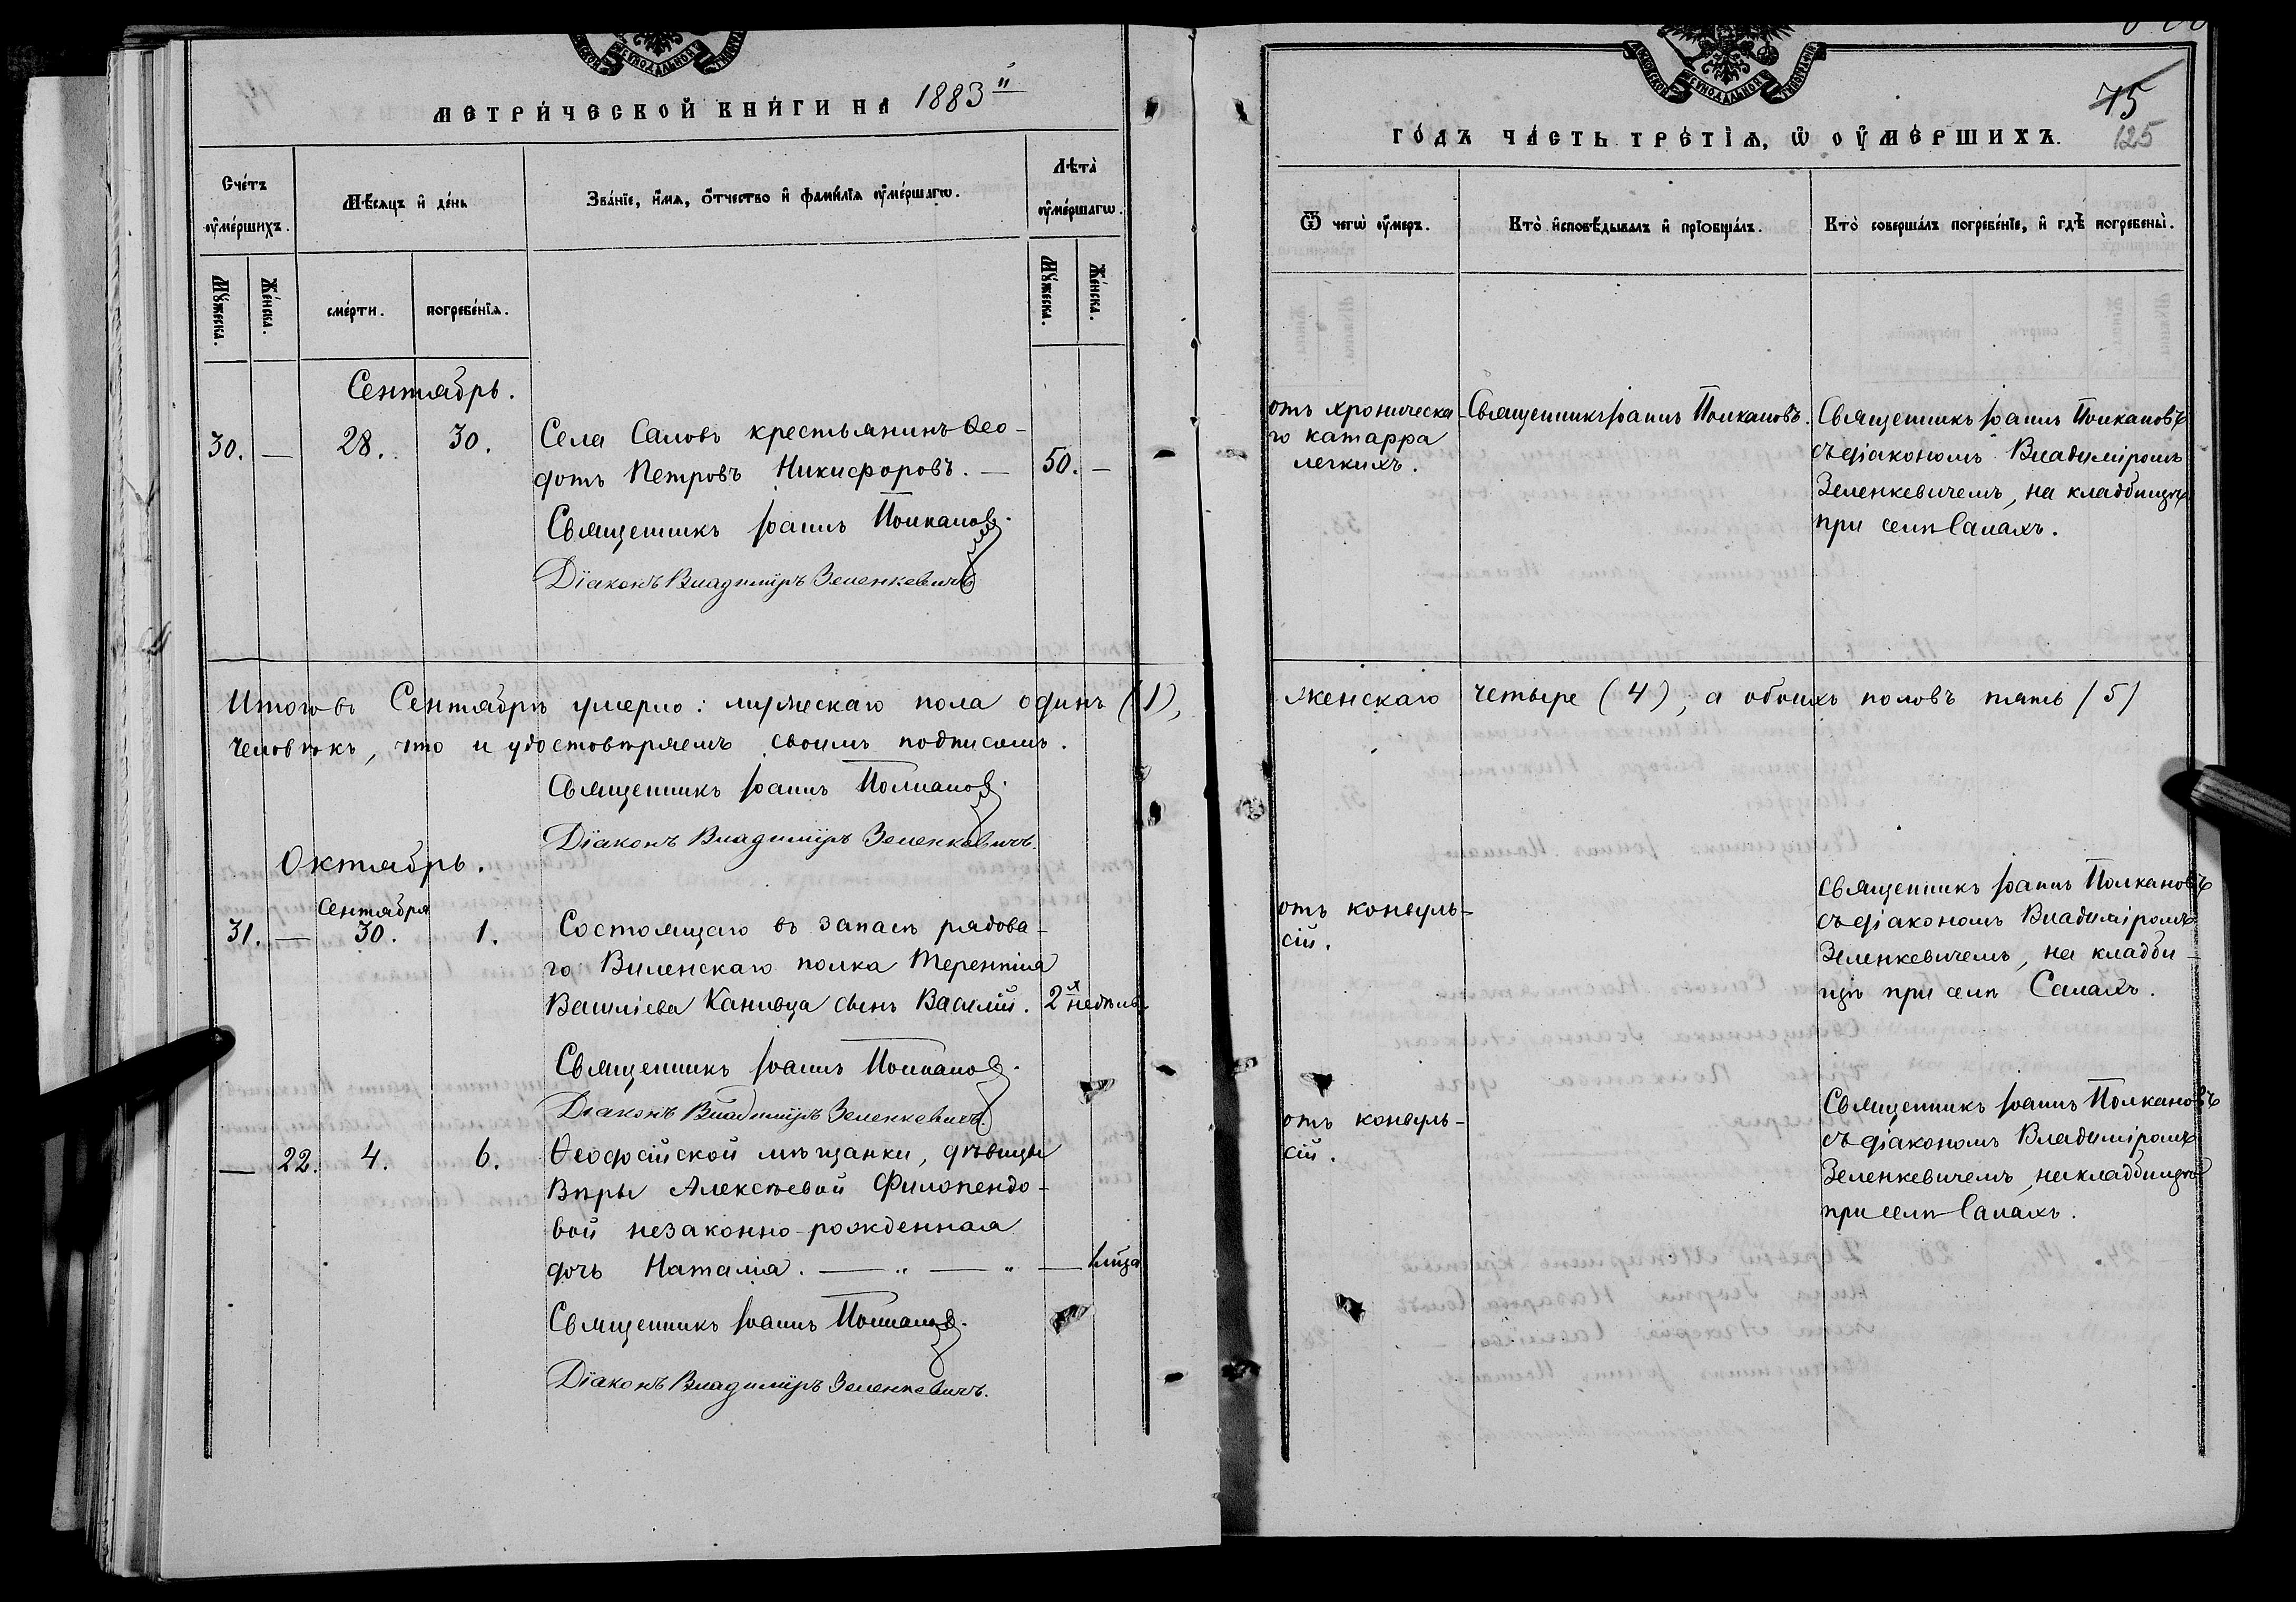 МЕТРИЧЕСКОЙ КНИГИ НА 1883й
Счетъ умершихъ.
Мѣсяцъ и день
Званіе, имя, отчество и фамилія умершагѡ.
Лѣта умершагѡ.
Мужеска.
Женска.
смерти.
погребенія.
Мужеска.
Женска.
Сентябрь.
30. — 28. 30. Села Саловъ крестьянинъ Ѳео-
дотъ Петровъ Никифоровъ. — 50. —
Священникъ Іоаннъ Полкановъ.
Діаконъ Владиміръ Зеленкевичъ
Итого въ Сентябрѣ умерло: мужескаго пола одинъ (1),
человѣкъ, что и удостовѣряемъ своимъ подписомъ.
Священникъ Іоаннъ Полкановъ.
Діаконъ Владиміръ Зеленкевичъ.
Октябрь.
Сентября
31. — 30. 1. Состоящаго въ запасѣ рядова-
го Виленскаго полка Терентія
Василіева Канивца сынъ Василій. 2х недѣль
Священникъ Іоаннъ Полкановъ.
Діаконъ Владиміръ Зеленкевичъ.
— 22. 4. 6. Ѳеодосійской мѣщанки, дѣвицы
Вѣры Алексѣевой Филопендо-
вой незаконно-рожденная
дочь Наталія. — „ — „ —
Священникъ Іоаннъ Полкановъ.
Діаконъ Владиміръ Зеленкевичъ.
75
125
ГОДЪ ЧАСТЬ ТРЕТІѦ, Ѡ ОУМЕРШИХЪ.
Ѿ чегѡ умеръ.
Кто исповѣдывалъ и пріобщалъ.
Кто совершалъ погребеніе, и гдѣ погребены.
отъ хроническа-
го катарра
легкихъ.
Священникъ Іоаннъ Полкановъ.
Священникъ Іоаннъ Полкановъ
съ діакономъ Владиміромъ
Зеленкевичемъ, на кладбищѣ
при селѣ Салахъ.
женскаго четыре (4), а обоихъ половъ пять (5)
отъ конвуль-
сій.
Священникъ Іоаннъ Полкановъ
съ діакономъ Владиміромъ
Зеленкевичемъ, на кладби-
щѣ при селѣ Салахъ.
отъ конвуль-
сій.
Священникъ Іоаннъ Полкановъ
съ діакономъ Владиміромъ
Зеленкевичемъ, на кладбищѣ
при селѣ Салахъ.